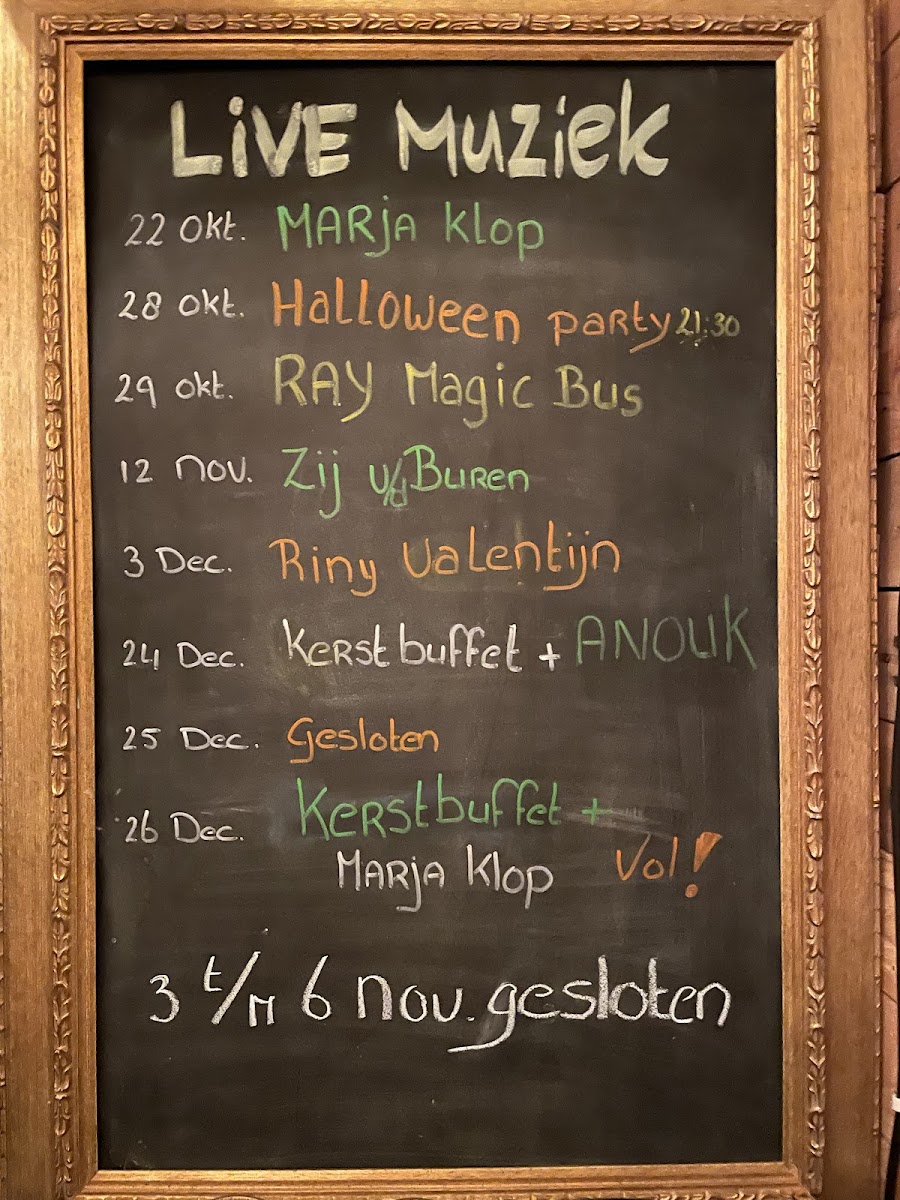 LiVE Muziek
22 okt. MARja Klop
28 okt. Halloween party 21:30
29 okt. RAY Magic Bus
12 nov. Zij v/d Buren
3 Dec. Riny Valentijn
24 Dec. Kerstbuffet + ANOUK
25 Dec. Gesloten
26 Dec. Kerstbuffet +
MARja Klop Vol!
3 t/m 6 nov. gesloten